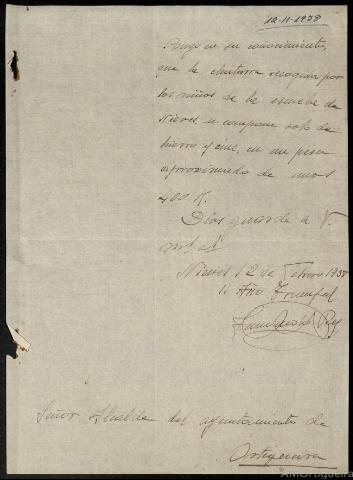 12-11-1938
Pongo en su conocimiento,
que la chatarra recogida por
los niños de la escuela de
Nieves, se compone solo de
hierro y cinc, en un peso
aproximado de unos
400 K.
Dios guarde a V.
m.s a.s
Nieves 12 de Febrero 1938
II Año Triunfal
Rey
Señor Alcalde del ayuntamiento de
Ortigueira
AMOrtigueira